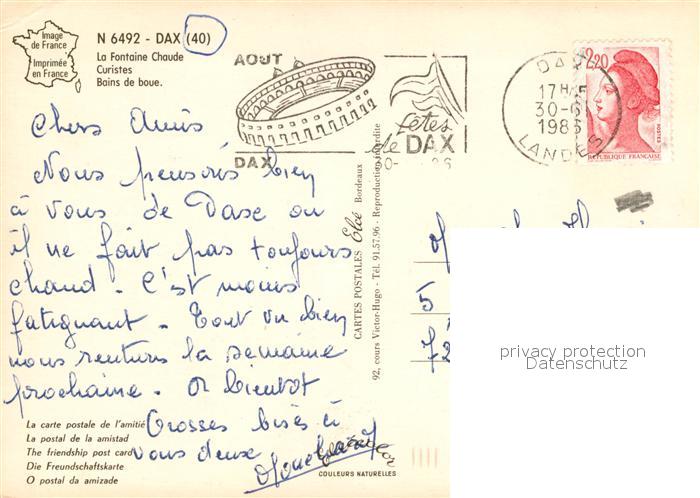 Image
de France
Imprimée
en France
N 6492 - DAX (40)
La Fontaine Chaude
Curistes
Bains de boue.
AOUT
DAX
fêtes
de DAX
DAX
17H
30-6
198
LANDES
2,20
POSTES
REPUBLIQUE FRANÇAISE
Chers Amis
Nous pensons bien
à vous de Dax ou
il ne fait pas toujours
chaud. C'est moins
fatiguant. Tout va bien
nous rentrons la semaine
prochaine. A bientôt
Grosses bises à
vous deux
CARTES POSTALES Elcé Bordeaux
92, cours Victor-Hugo - Tél. 91.57.96 - Reproduction interdite
5
72
privacy protection
Datenschutz
La carte postale de l'amitié
La postal de la amistad
The friendship post card
Die Freundschaftskarte
O postal da amizade
COULEURS NATURELLES